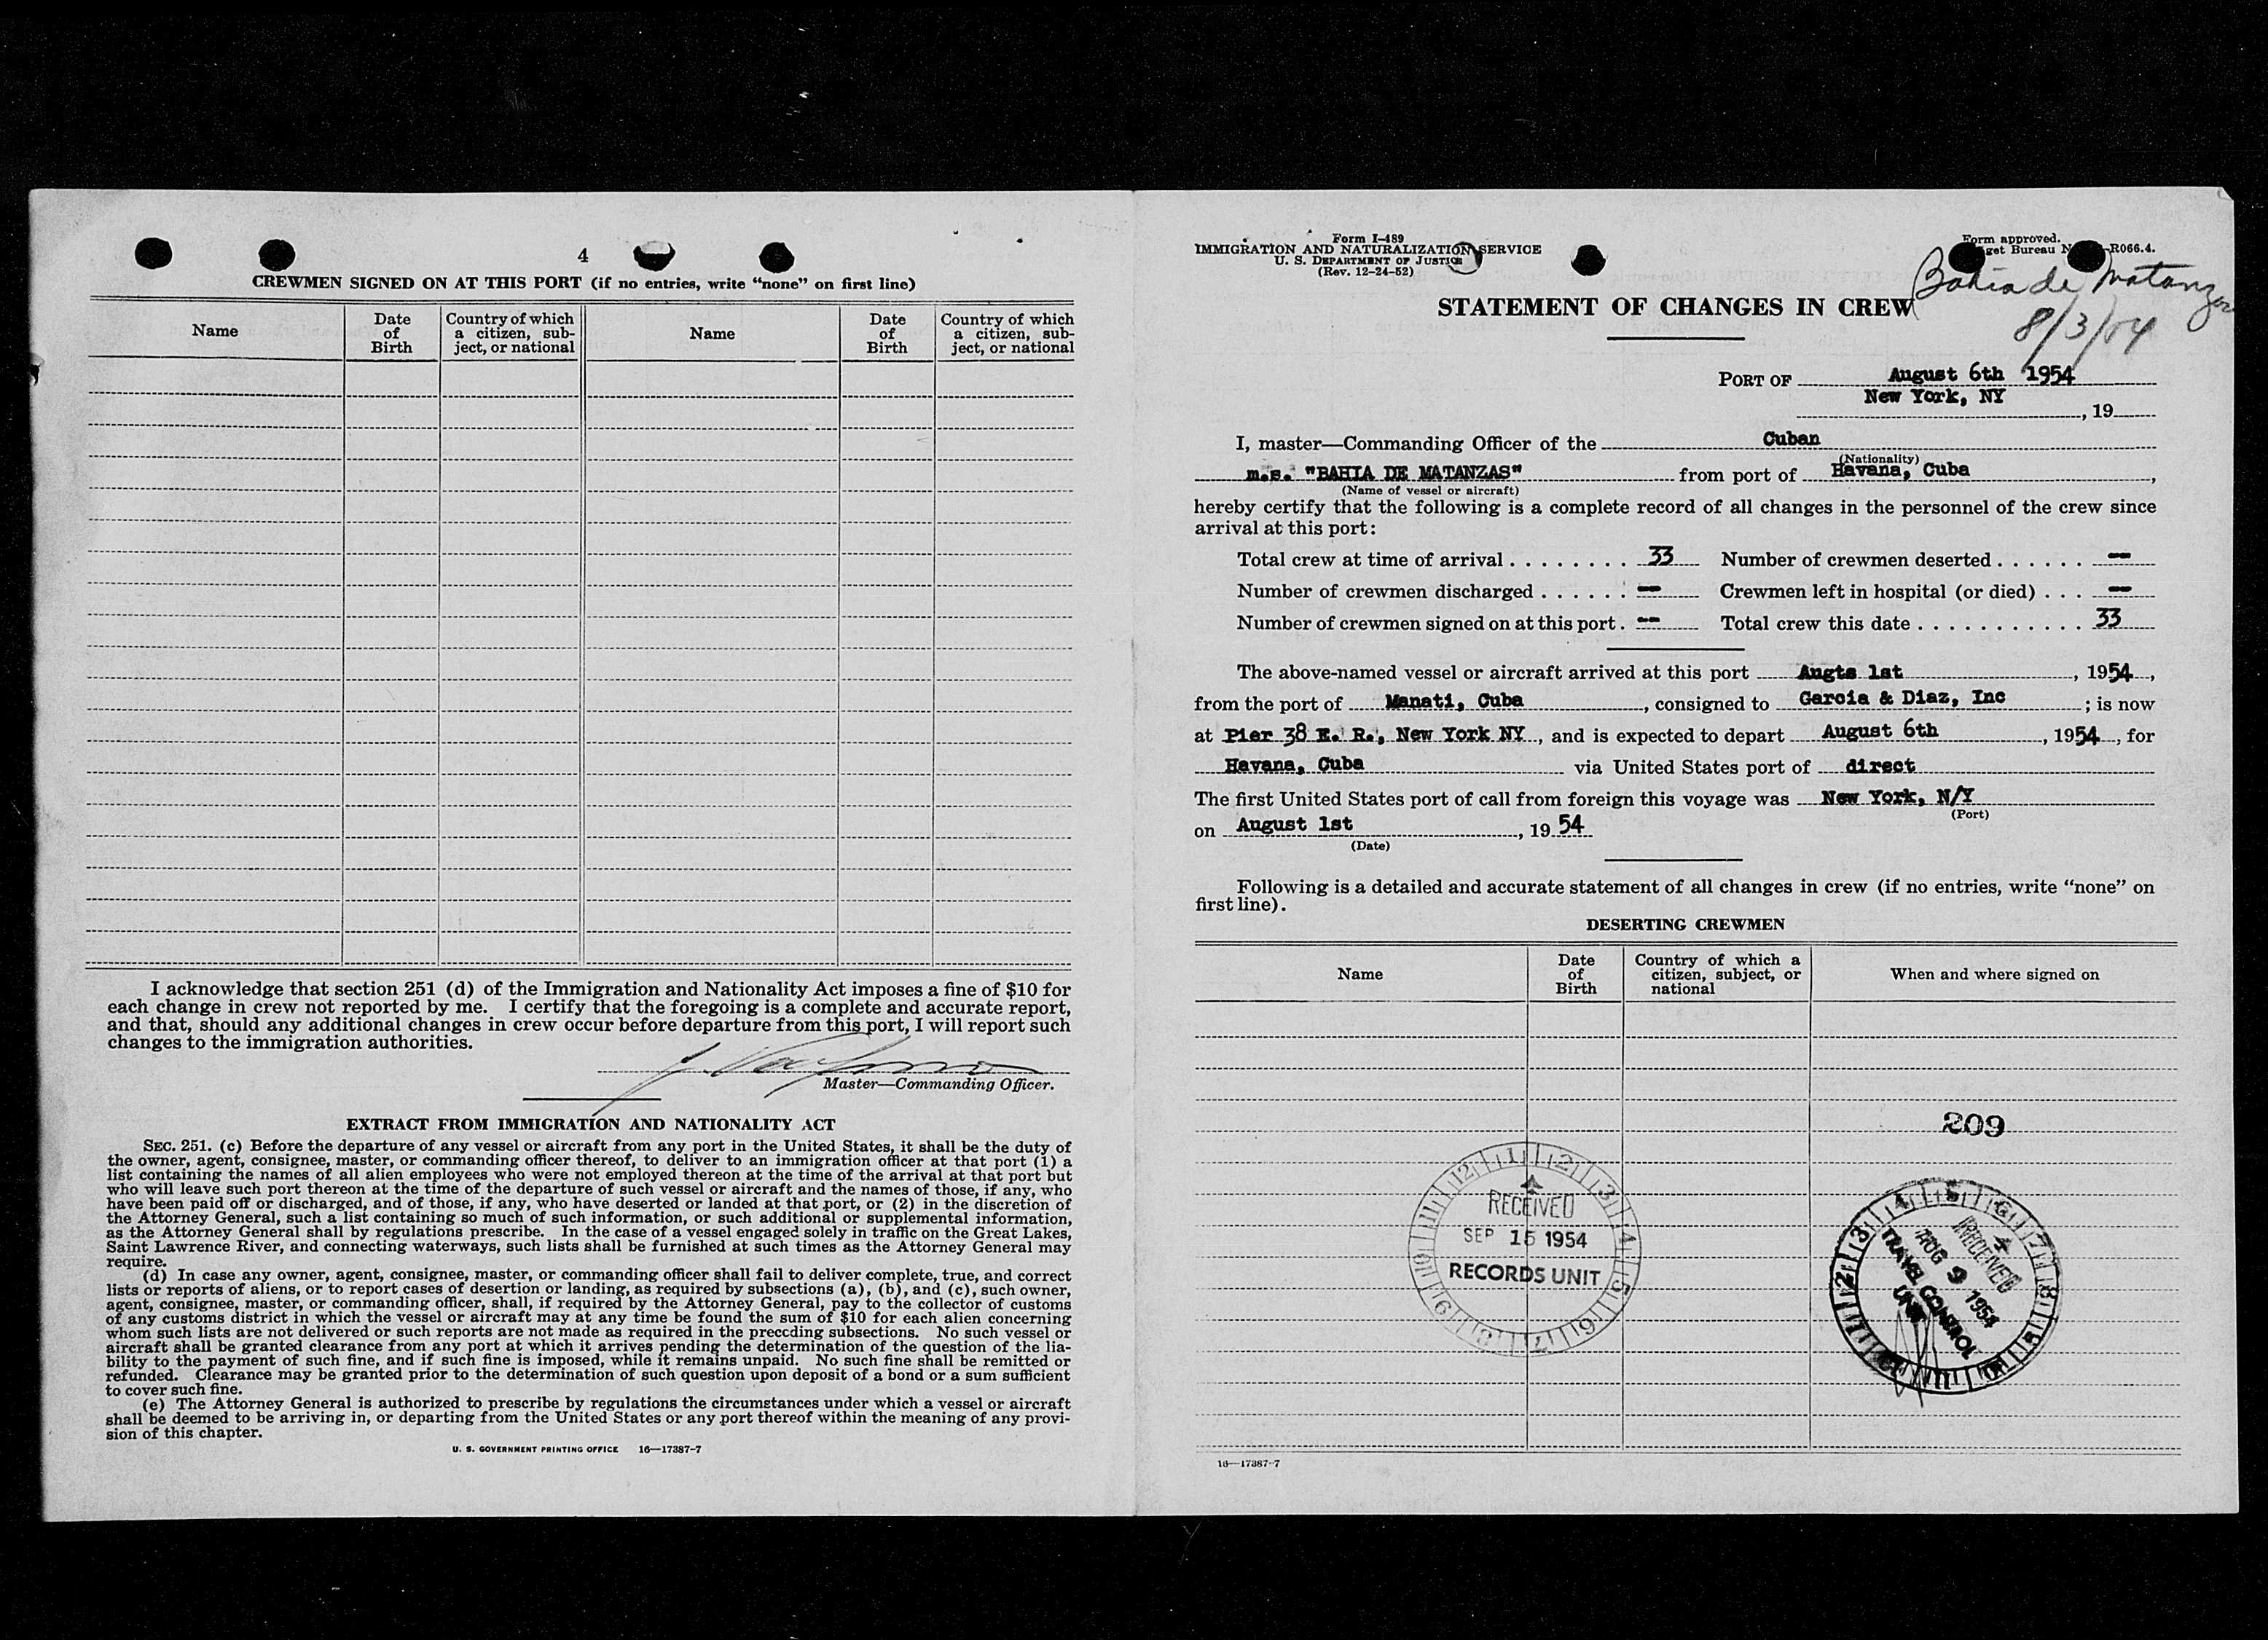 4
CREWMEN SIGNED ON AT THIS PORT (if no entries, write “none” on first line)
Name
Date of Birth
Country of which a citizen, sub-ject, or national
Name
Date of Birth
Country of which a citizen, sub-ject, or national
I acknowledge that section 251 (d) of the Immigration and Nationality Act imposes a fine of $10 for
each change in crew not reported by me. I certify that the foregoing is a complete and accurate report,
and that, should any additional changes in crew occur before departure from this port, I will report such
changes to the immigration authorities.
Master—Commanding Officer.
EXTRACT FROM IMMIGRATION AND NATIONALITY ACT
SEC. 251. (c) Before the departure of any vessel or aircraft from any port in the United States, it shall be the duty of
the owner, agent, consignee, master, or commanding officer thereof, to deliver to an immigration officer at that port (1) a
list containing the names of all alien employees who were not employed thereon at the time of the arrival at that port but
who will leave such port thereon at the time of the departure of such vessel or aircraft and the names of those, if any, who
have been paid off or discharged, and of those, if any, who have deserted or landed at that port, or (2) in the discretion of
the Attorney General, such a list containing so much of such information, or such additional or supplemental information,
as the Attorney General shall by regulations prescribe. In the case of a vessel engaged solely in traffic on the Great Lakes,
Saint Lawrence River, and connecting waterways, such lists shall be furnished at such times as the Attorney General may
require.
(d) In case any owner, agent, consignee, master, or commanding officer shall fail to deliver complete, true, and correct
lists or reports of aliens, or to report cases of desertion or landing, as required by subsections (a), (b), and (c), such owner,
agent, consignee, master, or commanding officer, shall, if required by the Attorney General, pay to the collector of customs
of any customs district in which the vessel or aircraft may at any time be found the sum of $10 for each alien concerning
whom such lists are not delivered or such reports are not made as required in the preceding subsections. No such vessel or
aircraft shall be granted clearance from any port at which it arrives pending the determination of the question of the lia-
bility to the payment of such fine, and if such fine is imposed, while it remains unpaid. No such fine shall be remitted or
refunded. Clearance may be granted prior to the determination of such question upon deposit of a bond or a sum sufficient
to cover such fine.
(e) The Attorney General is authorized to prescribe by regulations the circumstances under which a vessel or aircraft
shall be deemed to be arriving in, or departing from the United States or any port thereof within the meaning of any provi-
sion of this chapter.
U. S. GOVERNMENT PRINTING OFFICE 16—17387-7
Form I-489
IMMIGRATION AND NATURALIZATION SERVICE
U. S. DEPARTMENT OF JUSTICE
(Rev. 12-24-52)
Form approved.
Bureau R066.4.
Bahia de Matanzas
8/3/54
STATEMENT OF CHANGES IN CREW
PORT OF August 6th 1954
New York, NY , 19
I, master—Commanding Officer of the Cuban
(Nationality)
m.s. "BAHIA DE MATANZAS" from port of Havana, Cuba ,
(Name of vessel or aircraft)
hereby certify that the following is a complete record of all changes in the personnel of the crew since
arrival at this port:
Total crew at time of arrival . . . . . . . . 33 Number of crewmen deserted . . . . . . --
Number of crewmen discharged . . . . . . -- Crewmen left in hospital (or died) . . . --
Number of crewmen signed on at this port . -- Total crew this date . . . . . . . . . . . 33
The above-named vessel or aircraft arrived at this port Augts 1st , 1954 ,
from the port of Manati, Cuba , consigned to Garcia & Diaz, Inc ; is now
at Pier 38 E. R., New York NY , and is expected to depart August 6th , 1954 , for
Havana, Cuba via United States port of direct
The first United States port of call from foreign this voyage was New York, N/Y
(Port)
on August 1st , 19 54
(Date)
Following is a detailed and accurate statement of all changes in crew (if no entries, write “none” on
first line).
DESERTING CREWMEN
Name
Date of Birth
Country of which a citizen, subject, or national
When and where signed on
209
RECEIVED
SEP 15 1954
RECORDS UNIT
RECEIVED
AUG 9 1954
TRAVEL CONTROL
UNIT
16—17387-7